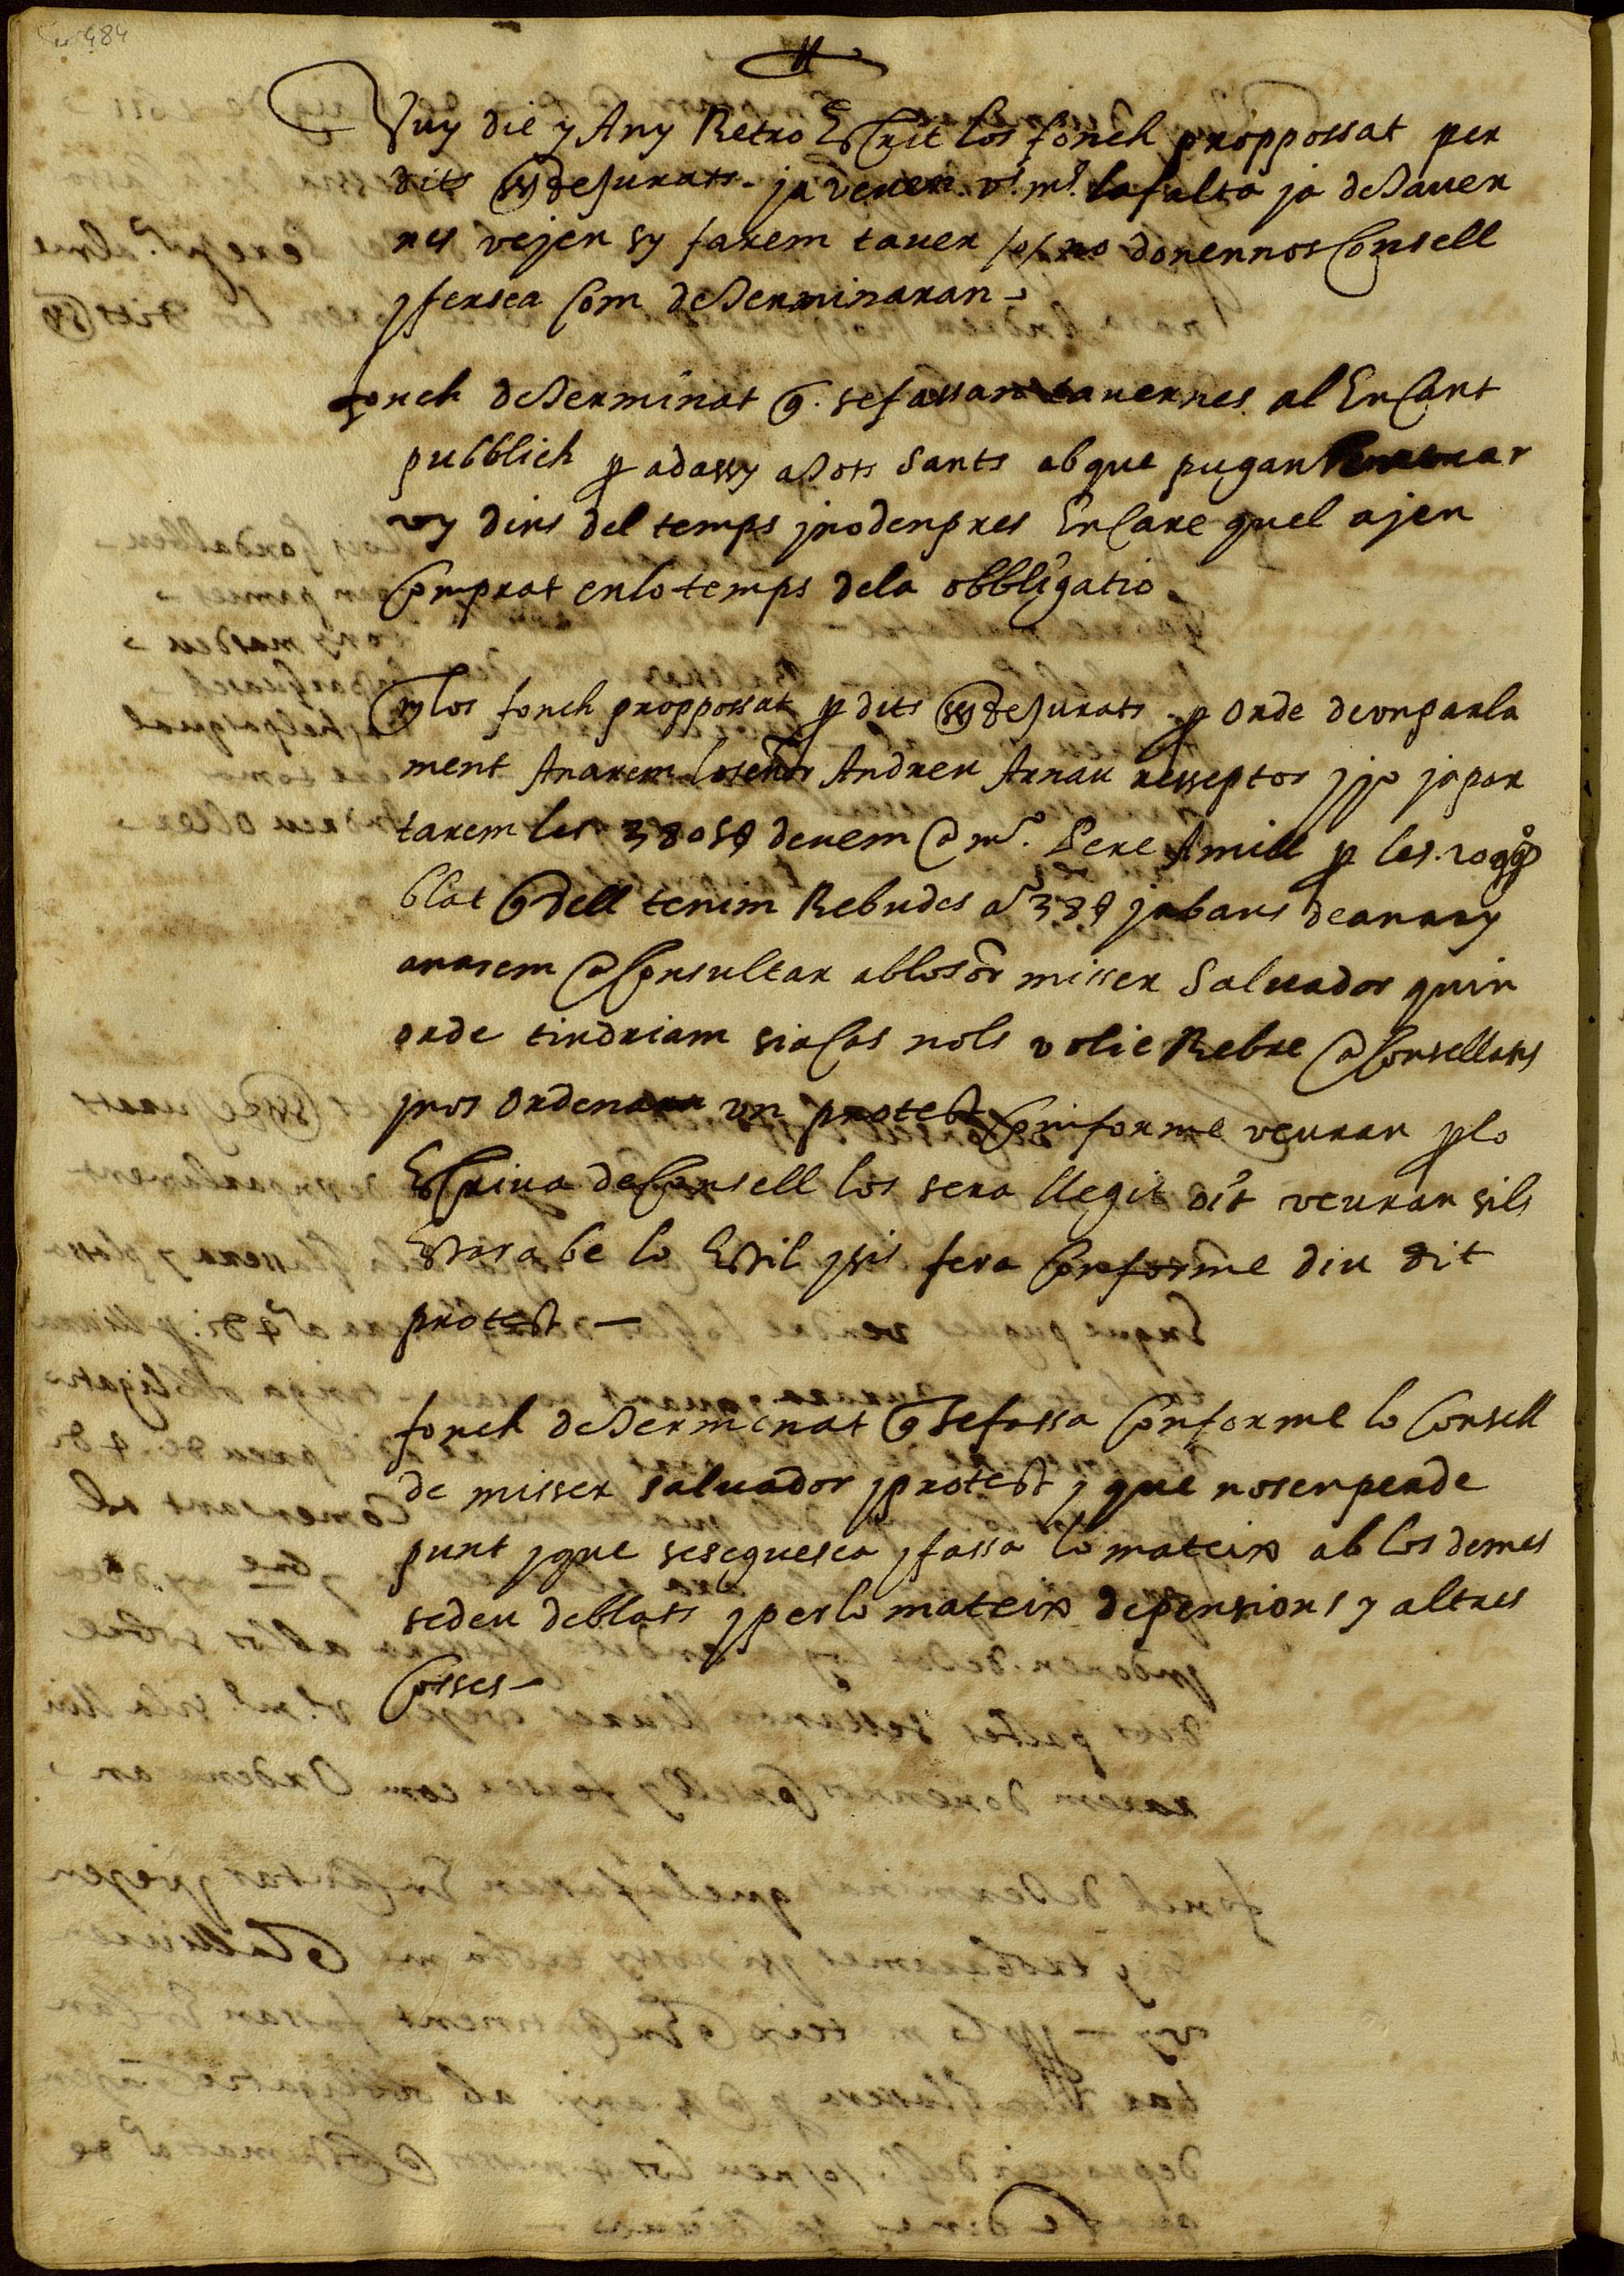 484
Vuy die y Any Retro Escrit los fonch proppossat per
dits ss de Jurats ja veuen vs. ms. la falta ja de taver
nes vejen sy farem taver /o/ no donennos Consell
y fersea Com determinaran
fonch determinat q. se fassan tavernes al Encant
pubblich p adassy a tots Sants ab que pugan
vy dins del temps y no denpres Encare quel ajen
Comprat en lo temps de la obbligatio
Mes los fonch proppossat p dits ss de Jurats p orde de un parla
ment Anarem lo señor Andreu Arnau resseptor y jo ja por
tarem les 380 devem a mº. Pere Amill p les 10
blat q dell tenim Rebudes a 38 y abans de anar y
anasem a Consultar ab lo sor misser Salvador quin
orde tindriam sia Cas nols volie Rebre a Consellans
y nos ordena un protest Conforme veuran p lo
Escriva de Consell los sera llegit dit veuran sils
Estara be lo Estil y sis fera Conforme diu dit
protest
fonch determinat q se fassa Conforme lo Consell
de misser salvador y protest y que nos en perde
punt y que sesequesca y fassa lo mateix ab los demes
se deu de blats y per lo mateix de pensions y altres
Cosses